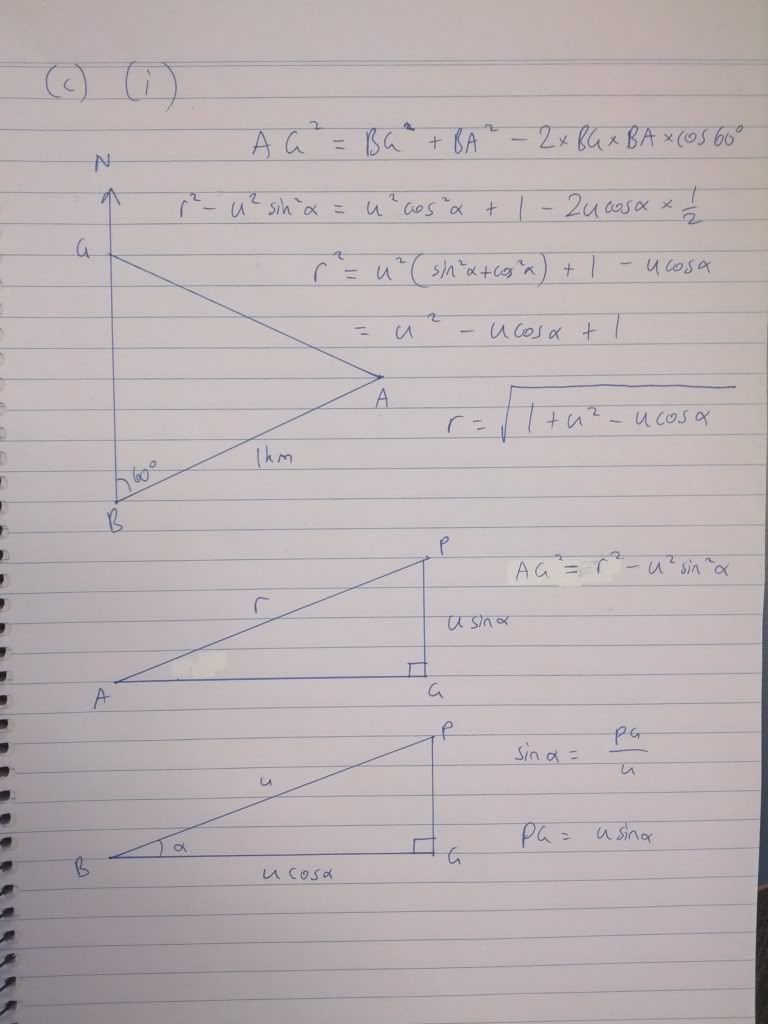 (c) (i)
AG² = BG² + BA² - 2×BG×BA×cos60°
N
r² - u² sin²α = u² cos²α + 1 - 2u cosα × 1/2
G
r² = u² (sin²α + cos²α) + 1 - u cosα
= u² - u cosα + 1
A
r = √(1 + u² - u cosα)
1km
60°
B
P
AG² = r² - u² sin²α
r
u sinα
A
G
P
sinα = PG/u
u
PG = u sinα
α
B
G
u cosα